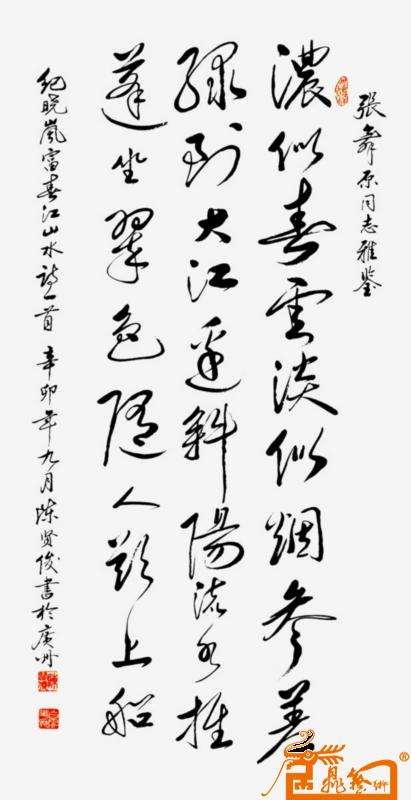 張舜原同志雅鑒
濃似春雲淡似烟參差
綠到大江邊斜陽流水推
蓬坐翠色隨人欲上船
纪晓嵐富春江山水詩一首 辛卯年九月陳贤俊書於廣州